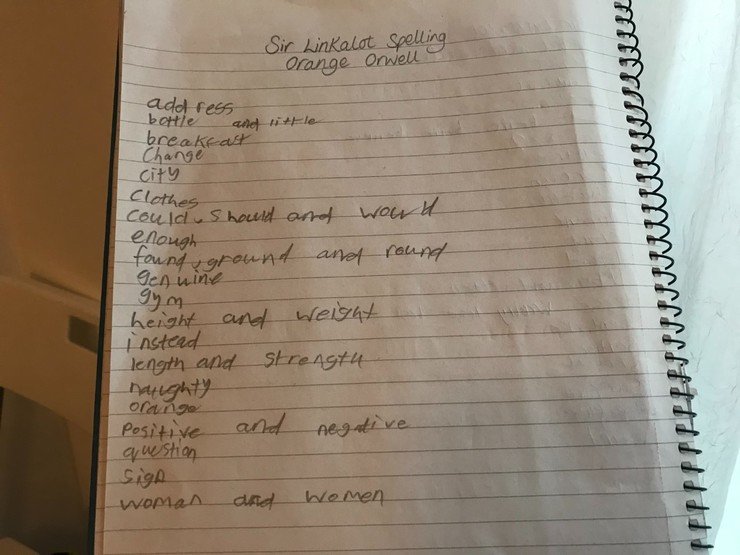 Sir Linkalot Spelling
Orange Orwell
address
bottle and little
breakfast
Change
city
Clothes
could, should and would
enough
found, ground and round
genuine
gym
height and weight
instead
length and strength
naughty
orange
positive and negative
question
sign
woman and women